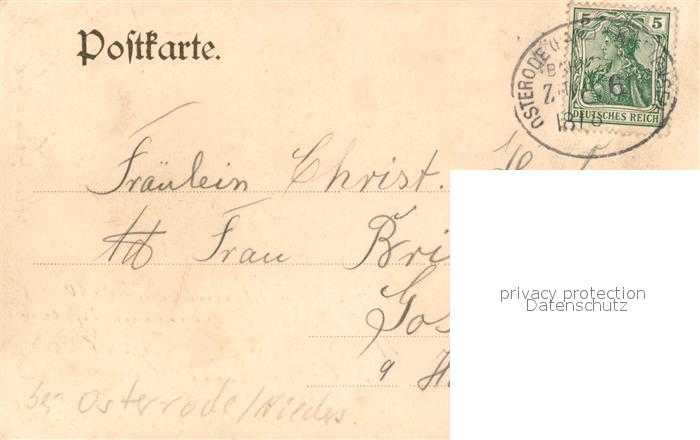 Postkarte.
5 5
OSTERODE
6
DEUTSCHES REICH
Fräulein Christ.
Frau Bri
Gos
a H
bei Osterrode/Nieders.
privacy protection
Datenschutz